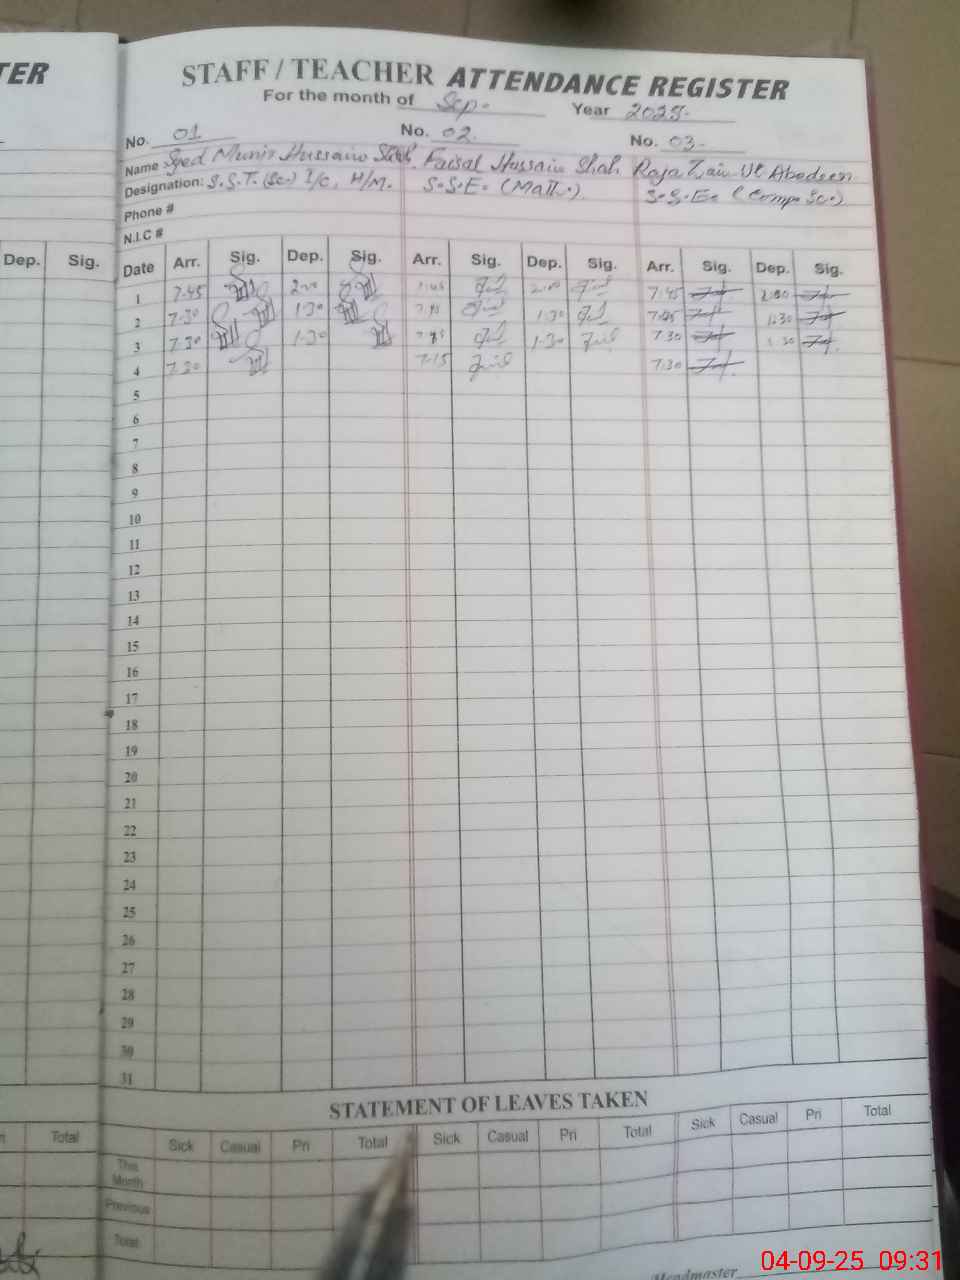 TER
STAFF / TEACHER ATTENDANCE REGISTER
For the month of Sep. Year 2025.
No. 01 No. 02 No. 03.
Name Syed Munir Hussain Shah. Faisal Hussain Shah Raja Zain Ul Abedeen
Designation: S.S.T. (Sc.) I/C, H/M. S.S.E. (Math.) S.S.E. (Comp. Sc.)
Phone #
N.I.C #
Dep. Sig. Date Arr. Sig. Dep. Sig. Arr. Sig. Dep. Sig. Arr. Sig. Dep. Sig.
1 7.45 2.00 7.45 2.00 7.45 2.00
2 7.30 1.30 1.30 1.30
3 7.30 1.30 1.30 7.30 1.30
4 7.30 7.15 7.30
5
6
7
8
9
10
11
12
13
14
15
16
17
18
19
20
21
22
23
24
25
26
27
28
29
30
31
STATEMENT OF LEAVES TAKEN
Total Sick Casual Pri Total Sick Casual Pri Total Sick Casual Pri Total
This Month
Previous
Total
Headmaster
04-09-25 09:31